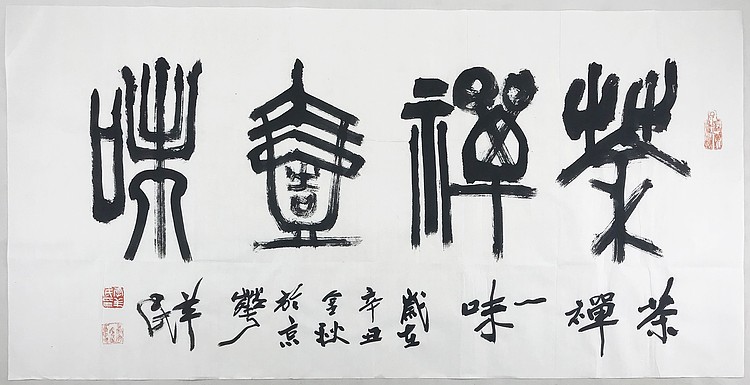 茶禪壹味
茶禪一味
歲在
辛丑
金秋
於京
羊民